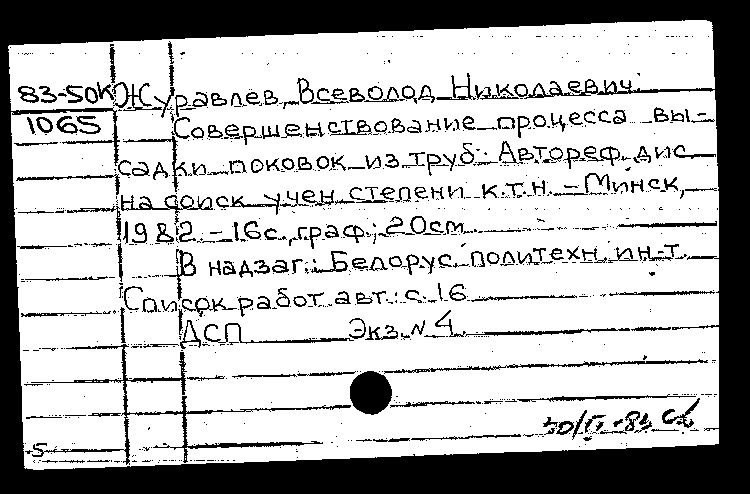 83-50К Журавлев, Всеволод Николаевич.
1065 Совершенствование процесса вы-
садки поковок из труб: Автореф. дис.
на соиск учен степени к.т.н. - Минск,
1982. - 16с., граф.; 20см.
В надзаг.: Белорус. политехн. ин-т.
Список работ авт.: с. 16
ДСП Экз. N 4.
S